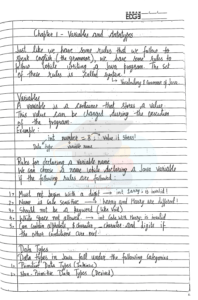 Chapter 1 - Variables and datatypes
Just like we have some rules that we follow to
speak english (the grammar), we have some rules to
follow while writing a Java program. The set
of these rules is called syntax
↳ Vocabulary & Grammar of Java
Variables
A variable is a container that stores a value.
This value can be changed during the execution
of the program.
Example:
int number = 8; → value it stores!
Data type variable name
Rules for declaring a variable name
We can choose a name while declaring a Java variable
if the following rules are followed:
1→ Must not begin with a digit → int 1arry; is invalid!
2→ Name is case sensitive → harry and Harry are different!
3→ Should not be a keyword (like Void)
4→ White space not allowed → int Code With Harry is invalid
5→ Can contain alphabets, $ character, _ character and digits if
the other conditions are met!
Data Types
Data types in Java fall under the following categories
1→ Primitive Data Types (Intrinsic)
2→ Non-Primitive Data Types (Derived)